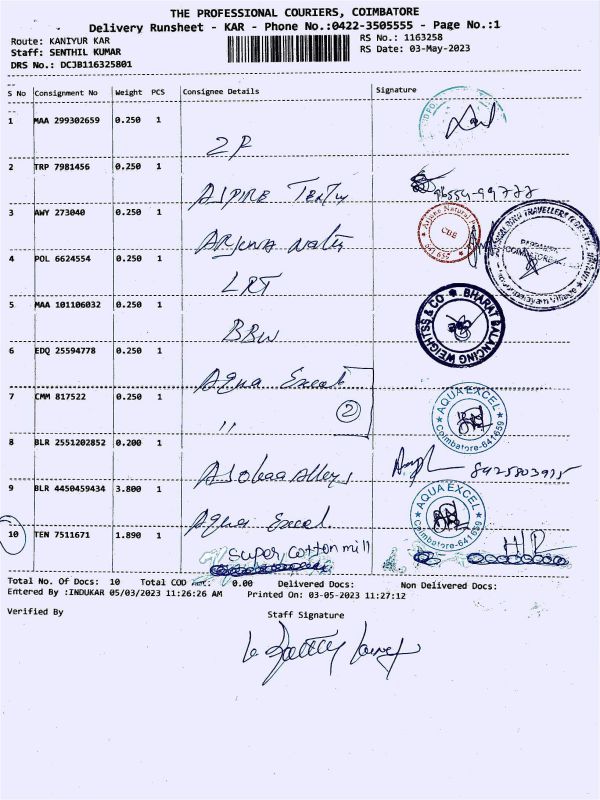 THE PROFESSIONAL COURIERS, COIMBATORE
Delivery Runsheet - KAR - Phone No.:0422-3505555 - Page No.:1
Route: KANIYUR KAR
RS No.: 1163258
Staff: SENTHIL KUMAR
RS Date: 03-May-2023
DRS No.: DCJB116325801
S No Consignment No Weight PCS Consignee Details Signature
1 MAA 299302659 0.250 1
2P
2 TRP 7981456 0.250 1
ASPIRE
96554-99722
3 AWY 273040 0.250 1
ARJUNA
CBE
641 659
4 POL 6624554 0.250 1
LRT
5 MAA 101106032 0.250 1
BBW
BHARAT BALANCING WEIGHTSS & CO
6 EDQ 25594778 0.250 1
Aqua Excel
7 CMM 817522 0.250 1
"
2
AQUA EXCEL
Coimbatore-641659
8 BLR 2551202852 0.200 1
8925803915
9 BLR 4450459434 3.800 1
Aqua Excel
AQUA EXCEL
Coimbatore-641659
10 TEN 7511671 1.890 1
Super cotton mill
Total No. Of Docs: 10 Total COD Amt.: 0.00 Delivered Docs: Non Delivered Docs:
Entered By :INDUKAR 05/03/2023 11:26:26 AM Printed On: 03-05-2023 11:27:12
Verified By
Staff Signature